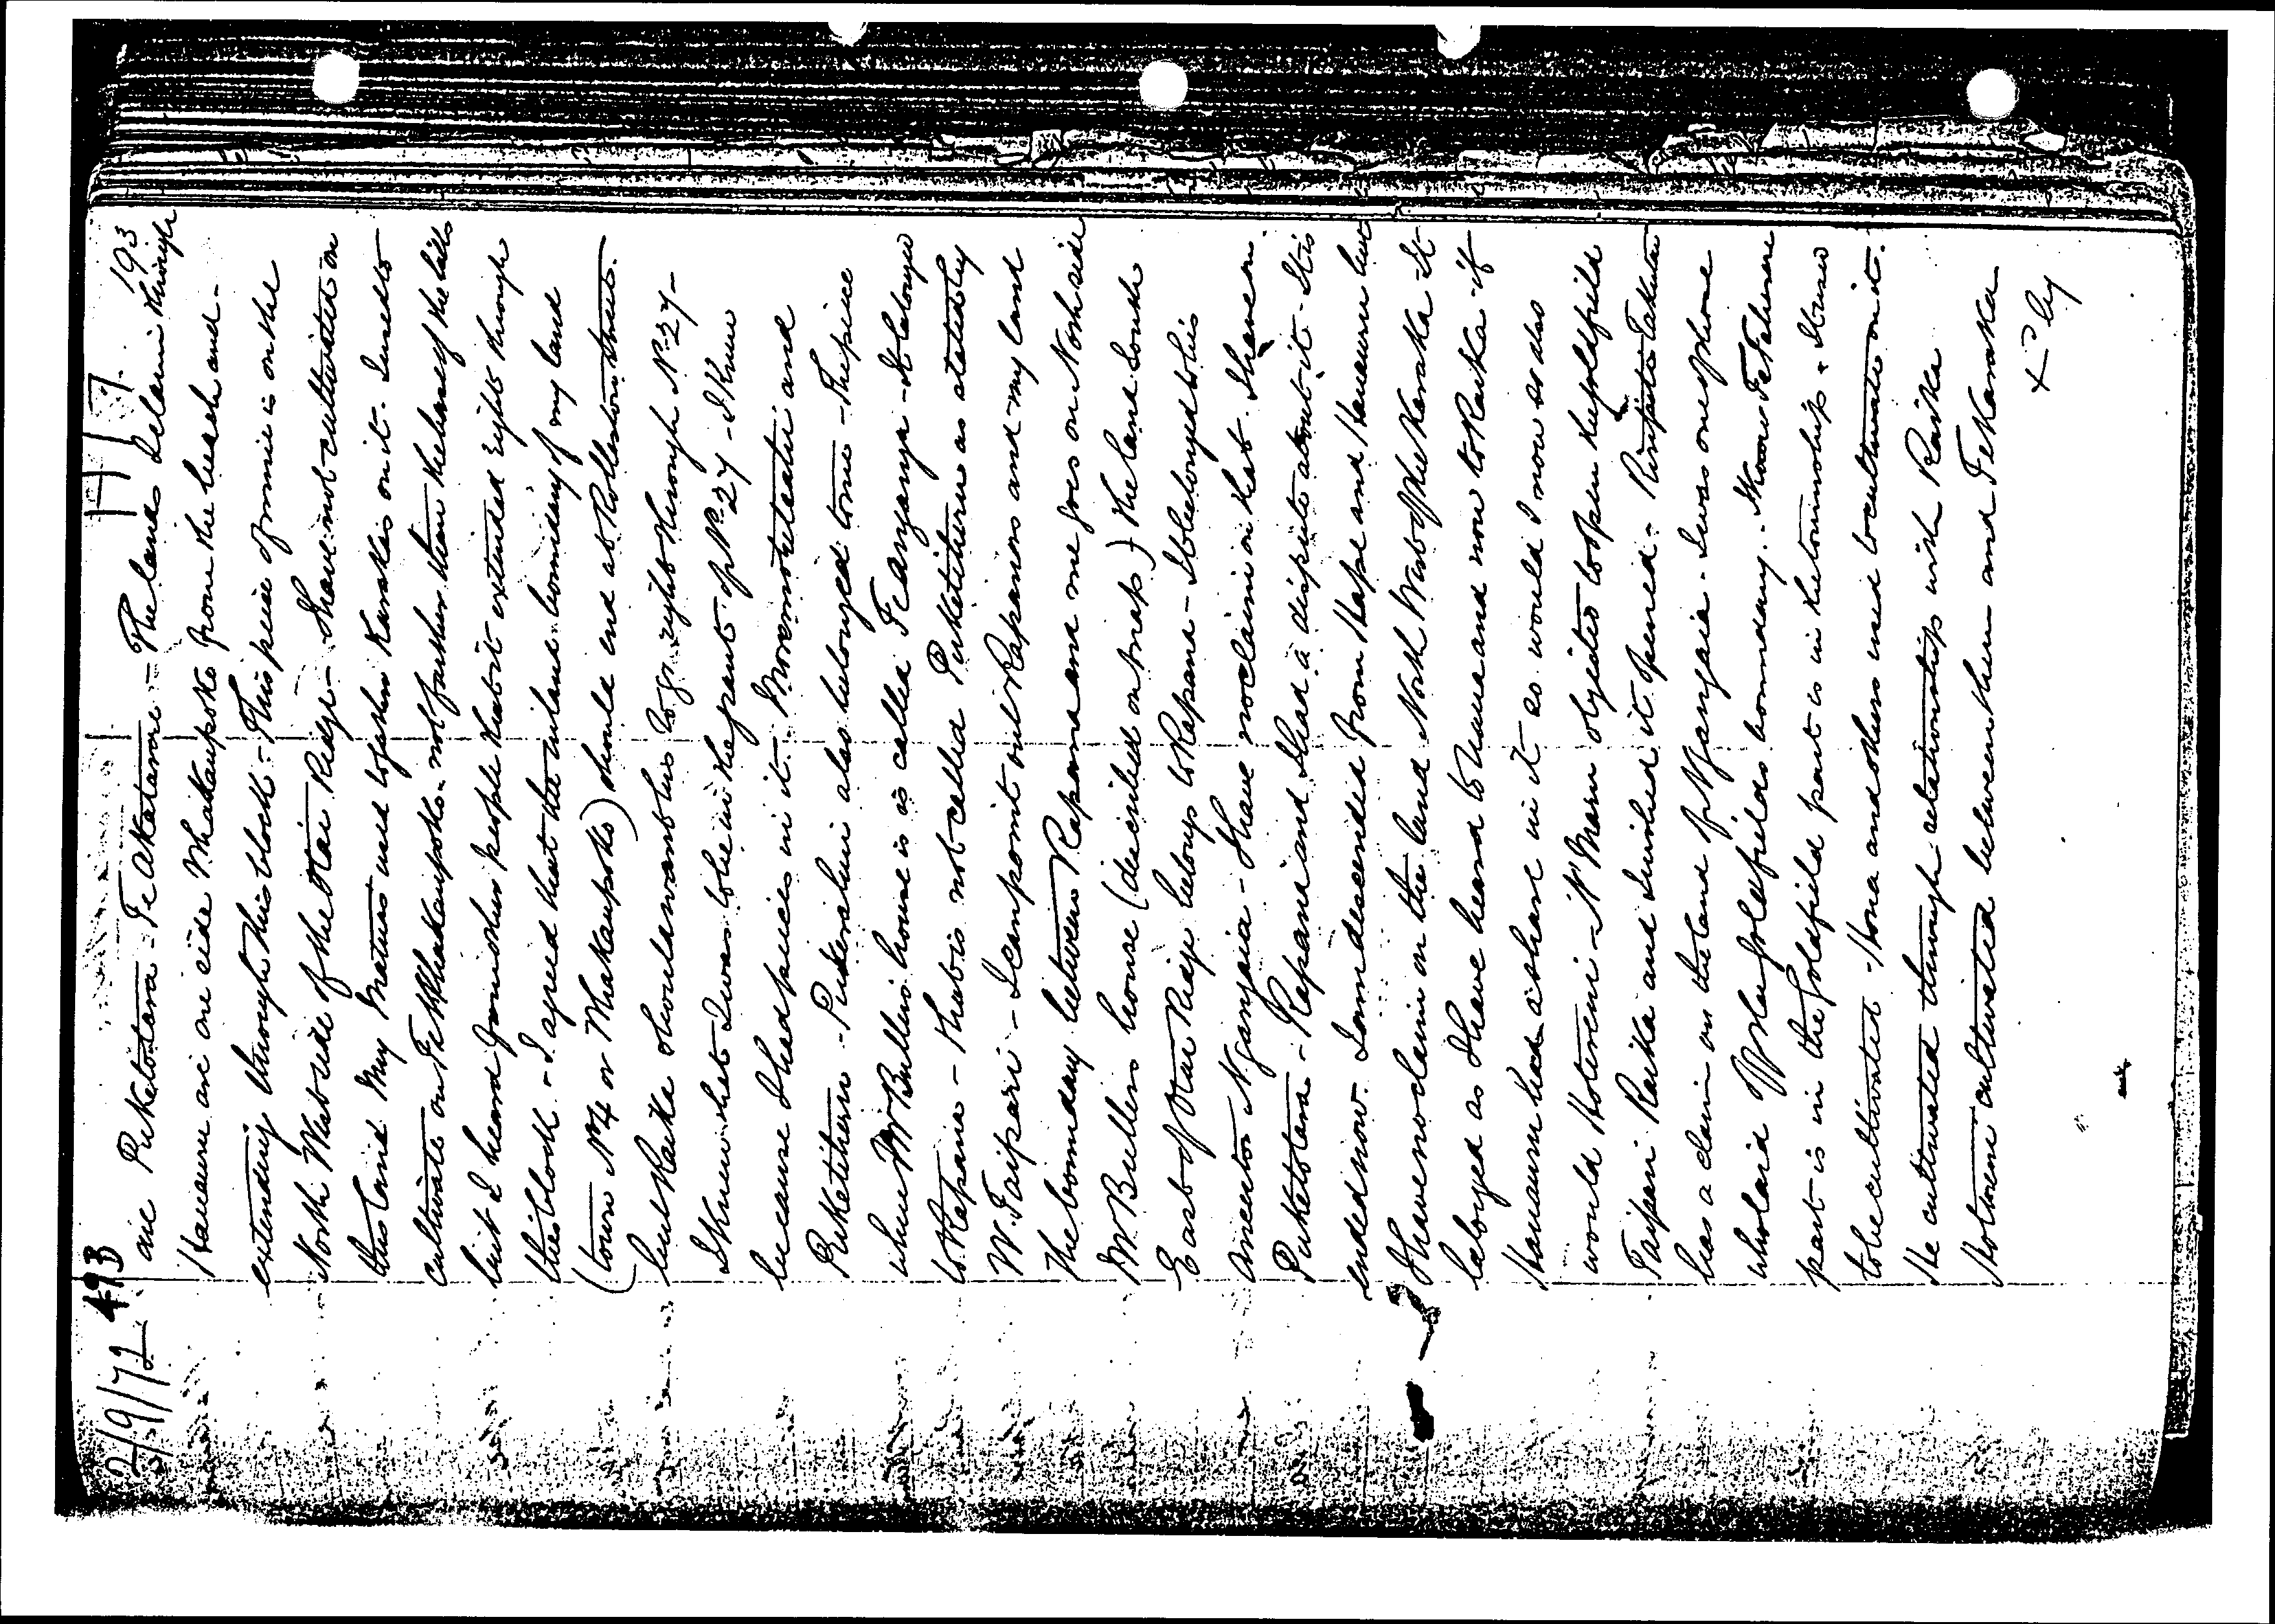 2/9/72 493 193
are Puketotara - Te Akatarere - The lands I claim through
Hauauru are on side Whakaupoko from the beach and -
extending through this block - This piece of mine is on the
North West side of the Otai Ridge - I have not cultivated on
this land My Matuas used to gather Karakas on it - I used to
cultivate on Te Whakaupoko - not farther than the base of the hills
but I heard from other people that it extended right through
this block - I agreed that the inland boundary of my land
(town No 4 or Whakaupoko) should end at Rolleston street -
but Raika should want his to go right through No 27 -
I knew that I was to be in the grant of No 27 - I knew
because I had pieces in it - Moremore leatii and
Puketitiriu - also belonged to me - The piece
where Mr Bullens house is is called Te anganga - It belonged
to Rapana - that is not called Puketitiriu as stated by
W. Taipari - I can point out Rapanas and my land
The boundary between Rapana and me goes on North side
Mr Bullens house (described on map) The land South
East of Otai Ridge belongs to Rapana - It belonged to his
ancestor Ngangaia - I have no claim on that. I have on
Puketotara - Rapana and I had a dispute about it - It is
ended now. I am descended from Hape and Hauauru but
I have no claim on the land North West of the Karaka - It
belonged as I have heard to Huna and now to Raika - if
Hauauru had a share in it so would I now so also
would Hotereni - Mr Mason objected to open the goldfield
Taipari Raika and I wished it opened -
has a claim on the land of Ngangaia. I was one of those
who laid off the goldfields boundary. I know
part is in the goldfield part is in the township - It used
to be cultivated - Hona and others used to cultivate on it.
He cultivated through relationship with Raika
Hotereni cultivated between them and Te Karaka